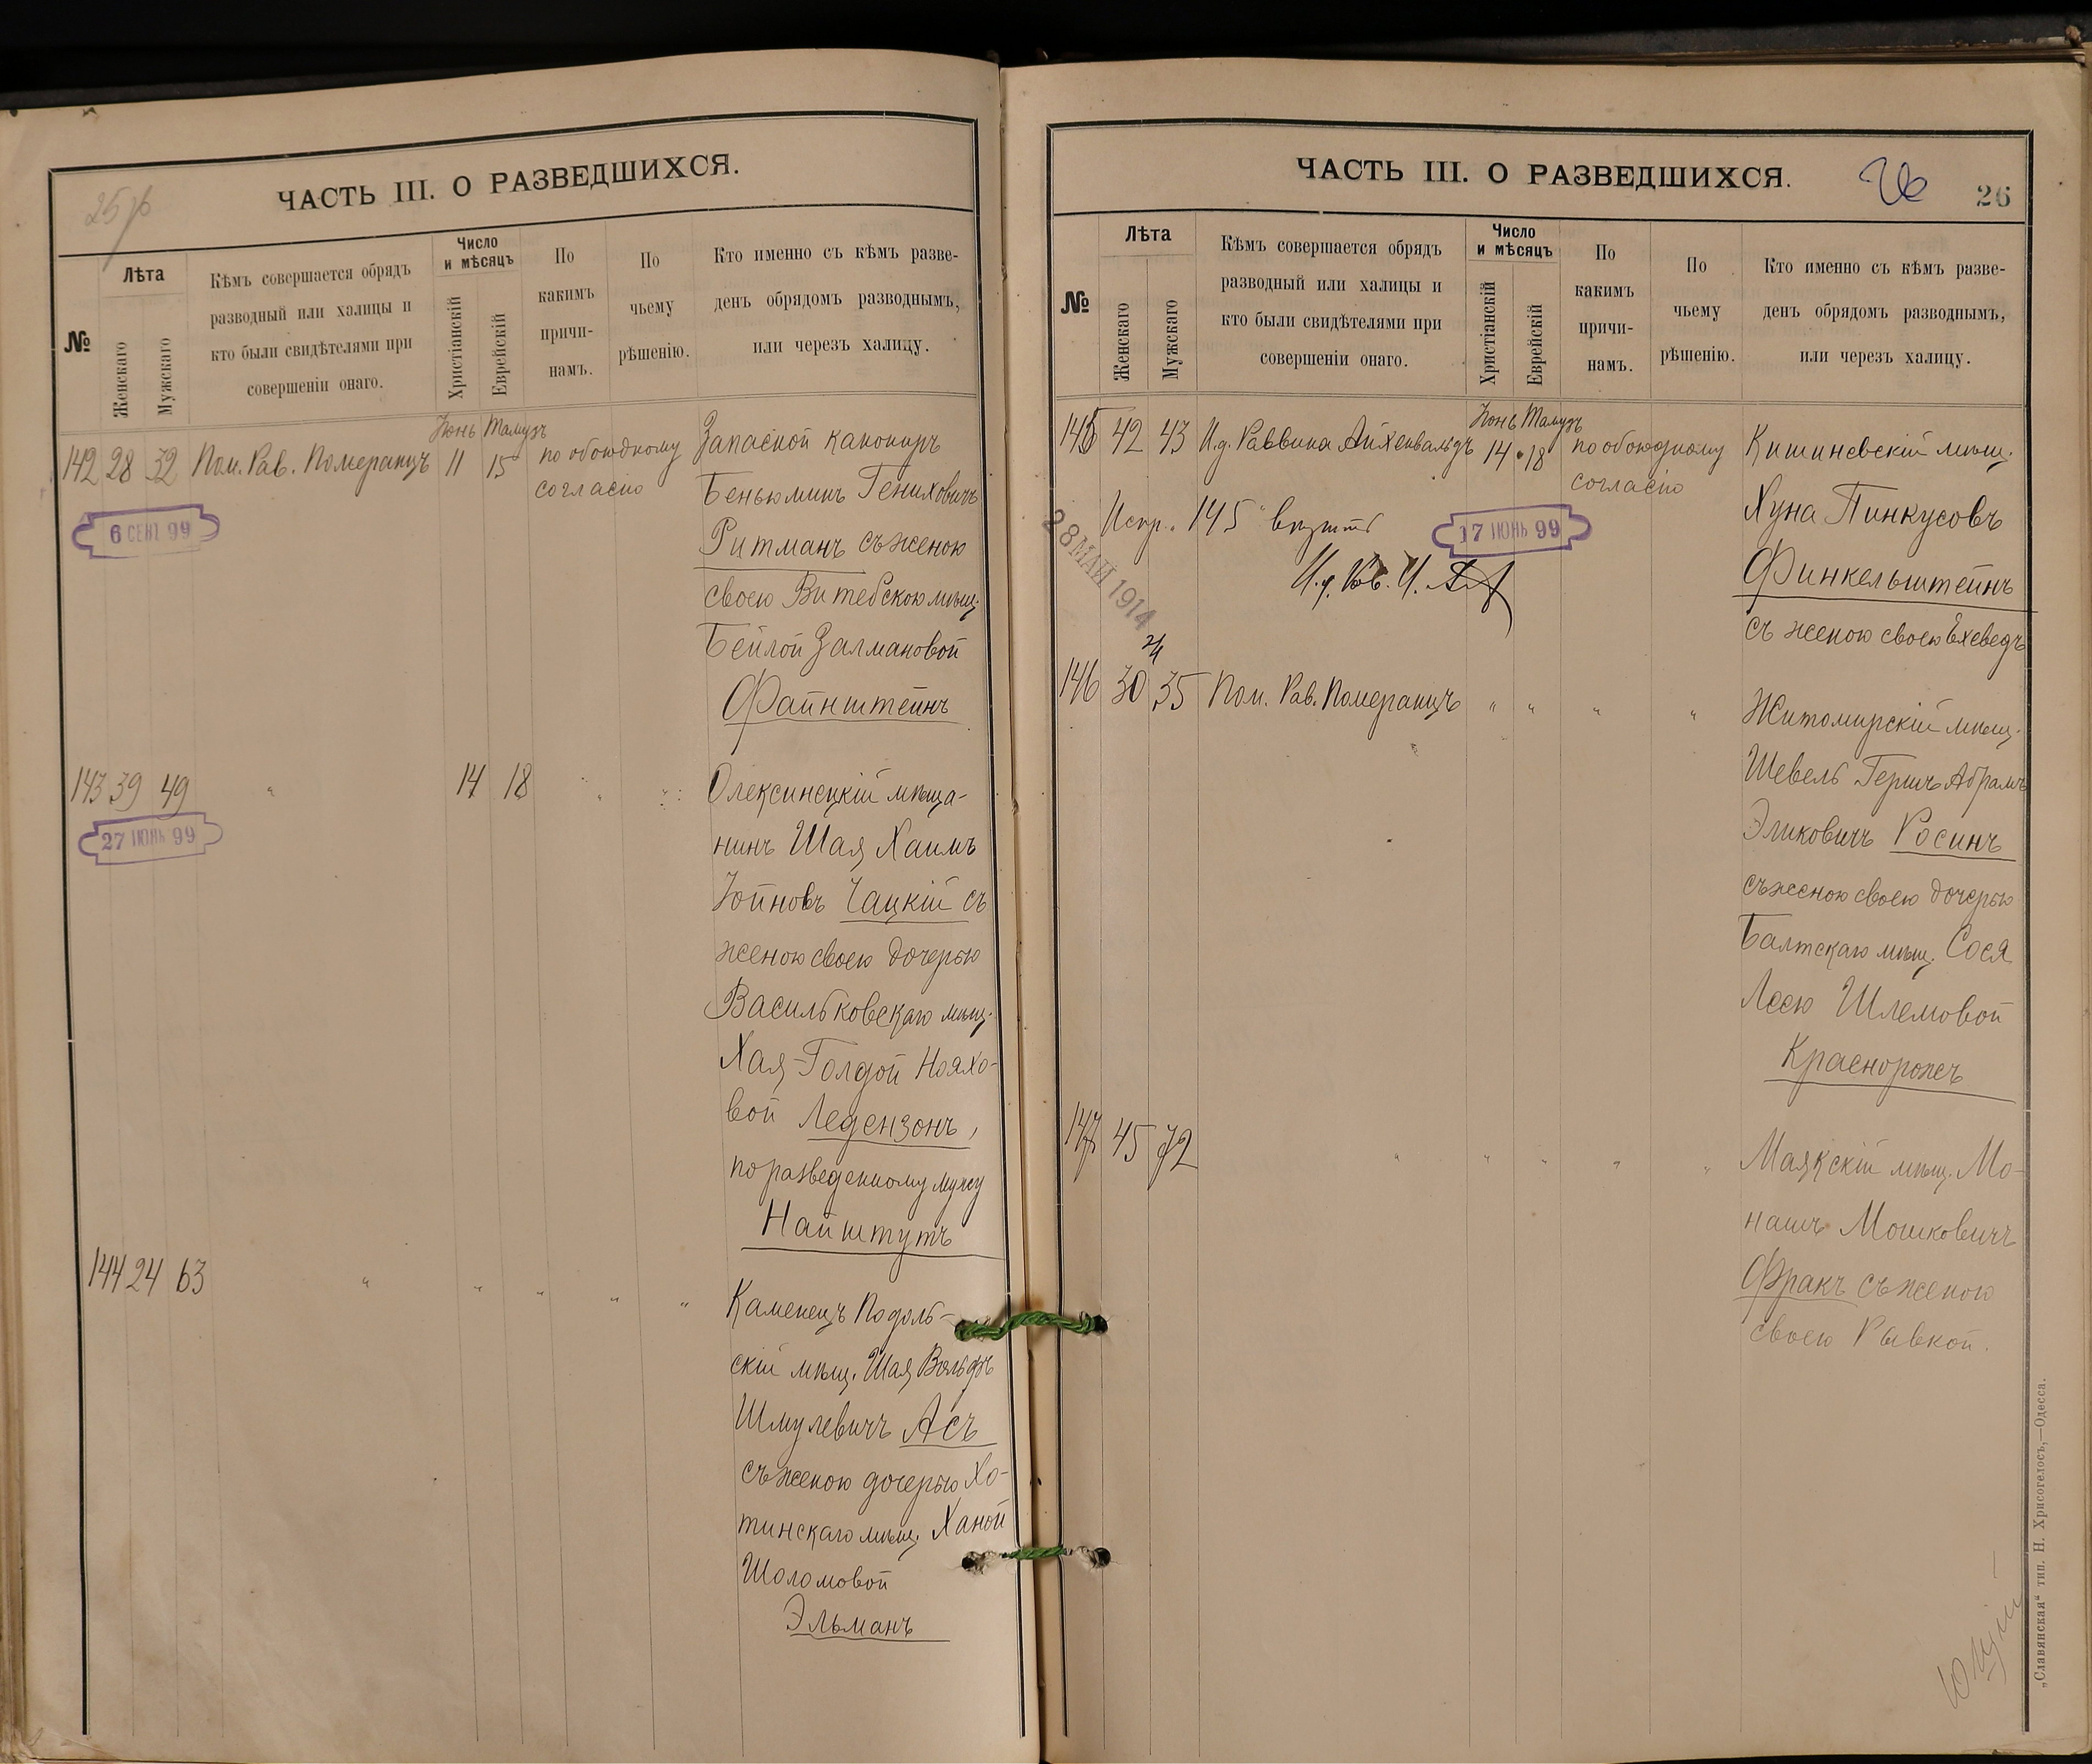 25 об
ЧАСТЬ III. О РАЗВЕДШИХСЯ.
№
Лѣта
Женскаго
Мужскаго
Кѣмъ совершается обрядъ
разводный или халицы и
кто были свидѣтелями при
совершеніи онаго.
Число
и мѣсяцъ
Христіанскій
Еврейскій
По
какимъ
причи-
намъ.
По
чьему
рѣшенію.
Кто именно съ кѣмъ разве-
денъ обрядомъ разводнымъ,
или черезъ халицу.
Іюнь Тамузъ
142 28 32 Пом. Рав. Померанцъ 11 15 по обоюдному
согласію
6 СЕНТ 99
Запасной канониръ
Беньюминъ Гениховичъ
Ритманъ съ женою
своею Витебскою мѣщ.
Бейлой Залмановой
Файнштейнъ
143 39 49 " 14 18 " "
27 ІЮНЬ 99
Олексинецкій мѣща-
нинъ Шая Хаимъ
Іойновъ Чацкій съ
женою своею дочерью
Васильковскаго мѣщ.
Хая-Голдой Нояхо-
вой Ледензонъ,
по разведенному мужу
Найштутъ
144 24 63 " " " " "
Каменецъ Подоль-
скій мѣщ. Шая Вольфъ
Шмулевичъ Асъ
съ женою дочерью Хо-
тинскаго мѣщ. Ханой
Шоломовой
Эльманъ
ЧАСТЬ III. О РАЗВЕДШИХСЯ.
26
26
№
Лѣта
Женскаго
Мужскаго
Кѣмъ совершается обрядъ
разводный или халицы и
кто были свидѣтелями при
совершеніи онаго.
Число
и мѣсяцъ
Христіанскій
Еврейскій
По
какимъ
причи-
намъ.
По
чьему
рѣшенію.
Кто именно съ кѣмъ разве-
денъ обрядомъ разводнымъ,
или черезъ халицу.
Іюнь Тамузъ
145 42 43 И.д. Раввина Айхенвальдъ 14 18 по обоюдному
согласію
Испр. "145" вѣрить
17 ІЮНЬ 99
И.д.
28 МАЙ 1914
Кишиневскій мѣщ.
Хуна Пинкусовъ
Финкельштейнъ
съ женою своею Ехеведъ
146 30 35 Пом. Рав. Померанцъ " " " "
Житомирскій мѣщ.
Шевель Гершъ Абрамъ
Эликовичъ Росинъ
съ женою своею дочерью
Балтскаго мѣщ. Сося
Леею Шлемовой
Краснорожъ
147 45 72 " " " " "
Маякскій мѣщ. Мо-
нашъ Мошковичъ
Фракъ съ женою
своею Рывкой.
„Славянская“ тип. Н. Хрисогелосъ,—Одесса.